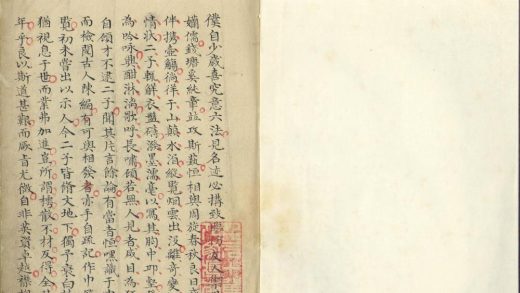 僕自少歲喜究意六法見名迹必搆致友人
儒錢奚純章並攻斯藝恒相與周旋春秋良日
伴携壺觴徜徉于山巔水涘縱覽烟雲出沒離奇變
情狀二子輒解衣盤礴潑墨濡毫以寫其胸中邱壑
為吟咏興酣淋漓歌呼長嘯傾若無人見者咸目為狂
自領才不逮二子聞其片言餘論有當者恒嘿藏于中
而檢閱古人陳編有可與相發者亦手自疏記作巾
覧初未嘗出以示人今二子皆脩文地下獨予衰白
猶視息于世而業弗加進豈所謂樗散不材反得全
年乎良以斯道甚艱而厥旨尤微自非英資卓越襟